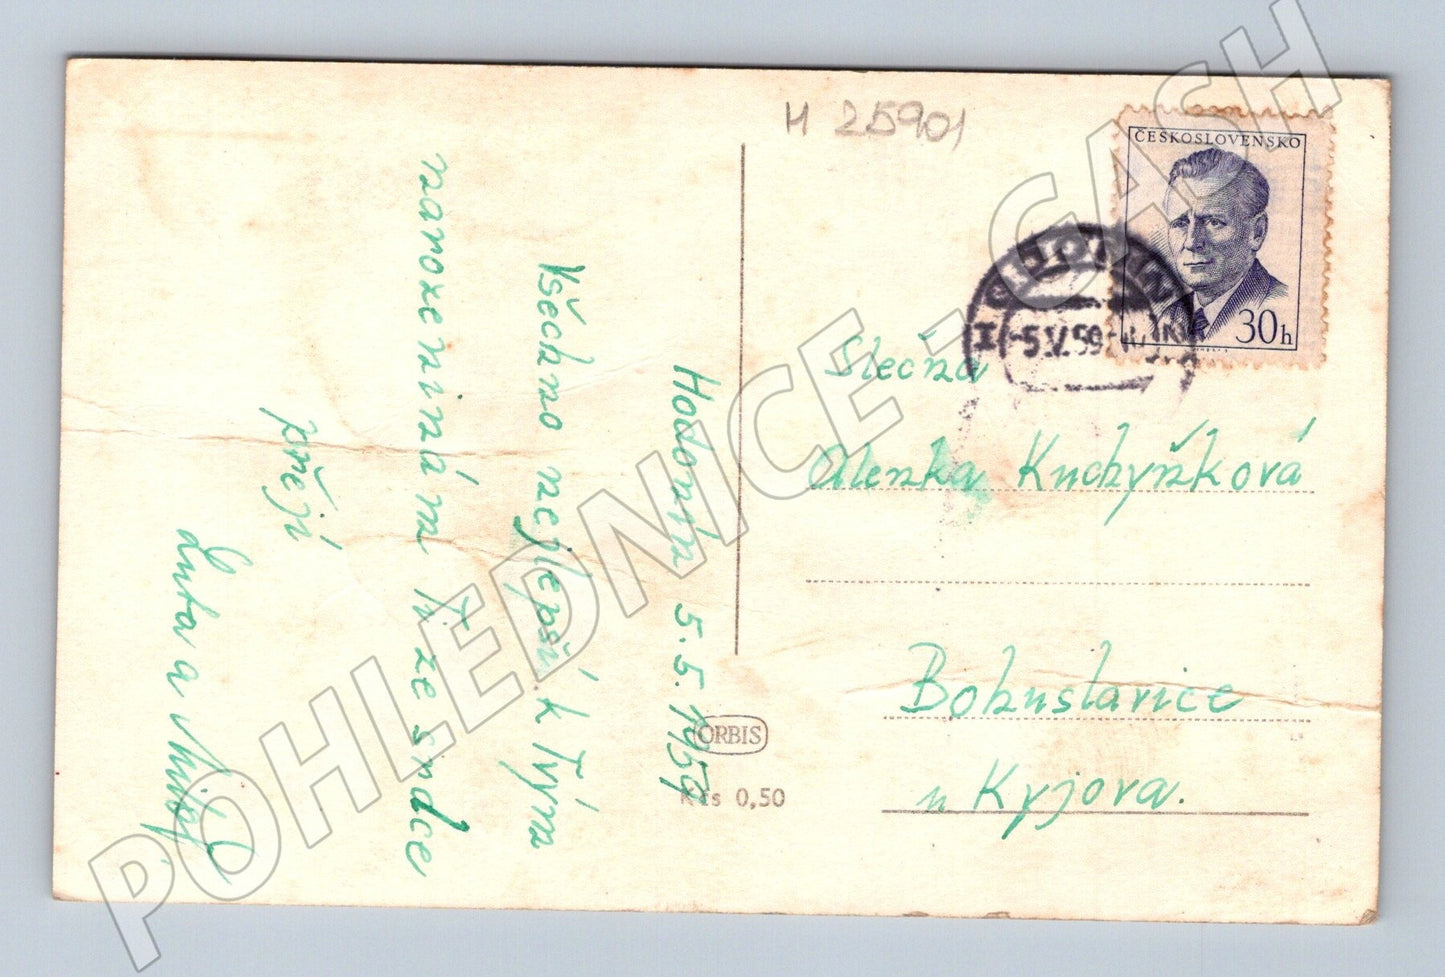 M 25901
ČESKOSLOVENSKO
30h
HODONÍN
-5.V.59
Hodonín 5.5.1959
Všechno nejlepší k Tvým
narozeninám Ti ze srdce
přejí
Luba a
Slečna
Alenka Kuchyňková
Bohuslavice
u Kyjova.
ORBIS
Kčs 0,50
POHLEDNICE - GASH